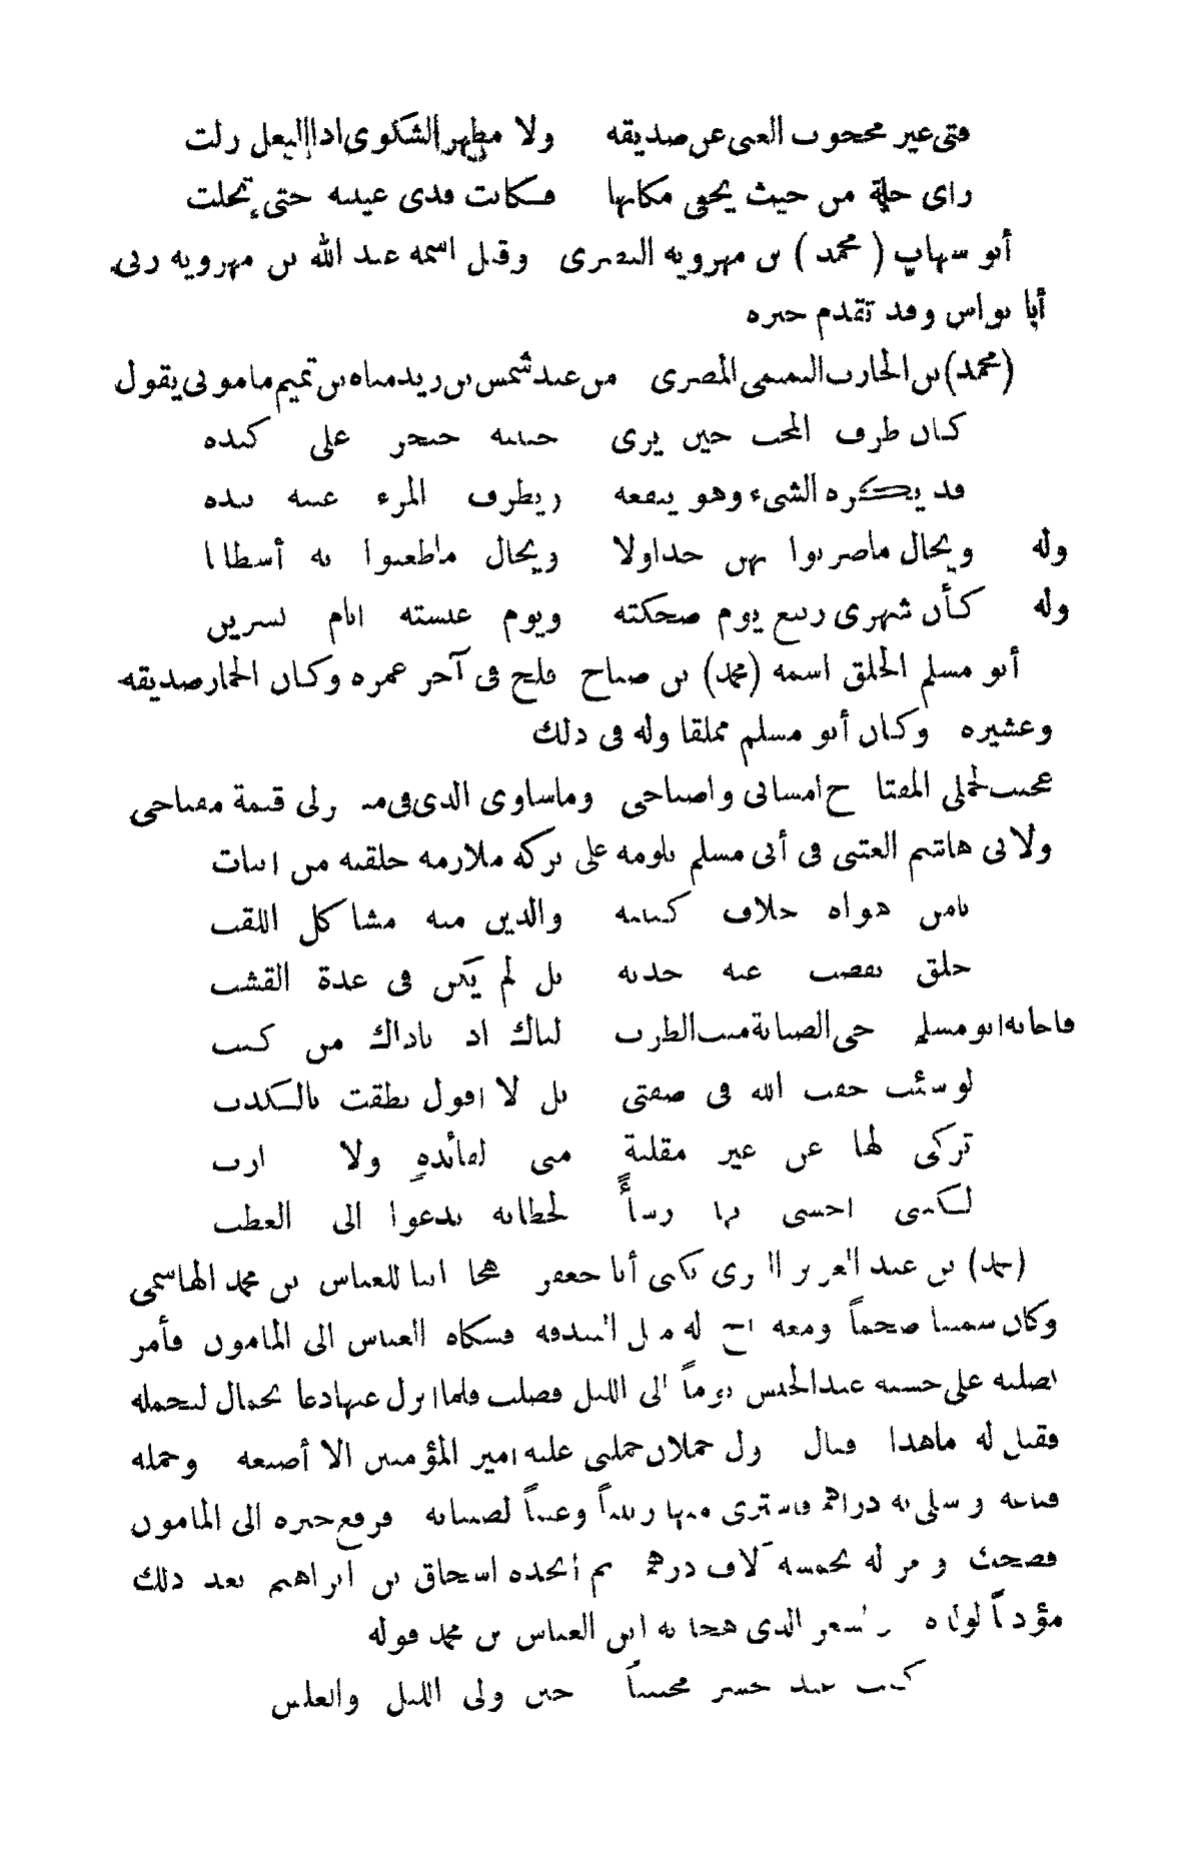 فتى غير محجوب الغنى عن صديقه ولا مظهر الشكوى اذا النعل زلت
راى خلة من حيث يخفى مكانها فكانت قذى عينيه حتى تجلت
أبو شهاب (محمد) بن مهرويه البصرى وقيل اسمه عبد الله بن مهرويه رثى
أبا نواس وقد تقدم خبره
(محمد) بن الحارث التميمى المصرى من عبد شمس بن زيد مناة بن تميم مامونى يقول
كان طرف المحب حين يرى حبيبه خنجر على كبده
قد يكره الشىء وهو ينفعه ويطرف المرء عينه بيده
وله ويخال ماضربوا بهن جداولا ويخال ماطعنوا به أسطانا
وله كأن شهرى ربيع يوم ضحكته ويوم عبسته ايام تسرين
أبو مسلم الخلق اسمه (محمد) بن صباح فلج فى آخر عمره وكان الجمار صديقه
وعشيره وكان أبو مسلم مملقا وله فى ذلك
عجبت لحملى المفتاح امسائى واصباحى وماساوى الذى فى رلى قيمة مفتاحى
ولابى هاشم العتبى فى أبى مسلم يلومه على تركه ملازمه حلقته من ابيات
يامن هواه خلاف كنيته والدين منه مشاكل اللقب
خلق تقضت عنه جدته بل لم يكن فى عدة القشب
فاجابه ابو مسلم حى الصبابة ميت الطرب لباك اذ ناداك من كثب
لو شئت خفت الله فى صفتى بل لا اقول نطقت بالكذب
تركى لها عن غير مقلية منى لفائدة ولا ارب
لكننى اخشى بها رشأً لحظاته تدعوا الى العطب
(محمد) بن عبد العزيز يكنى أبا جعفر هجا ابنا للعباس بن محمد الهاشمى
وكان سمينا ضخماً ومعه له فشكاه العباس الى المامون فأمر
بصلبه على خشبه عند الحبس يوماً الى الليل فصلب فلما انزل عنها دعا بحمال ليحمله
فقيل له ماهذا فقال حملان حملنى عليه امير المؤمنين الا أضيعه وحمله
فباعه به دراهم فاشترى منها زبيباً وعنباً لصبيانه فرفع خبره الى المامون
فضحك له بخمسه آلاف درهم ثم اتخذه اسحاق بن ابراهيم بعد ذلك
مؤدباً لولده الذى هجا به ابن العباس بن محمد قوله
كنت عند محبساً حين ولى الليل والغلس